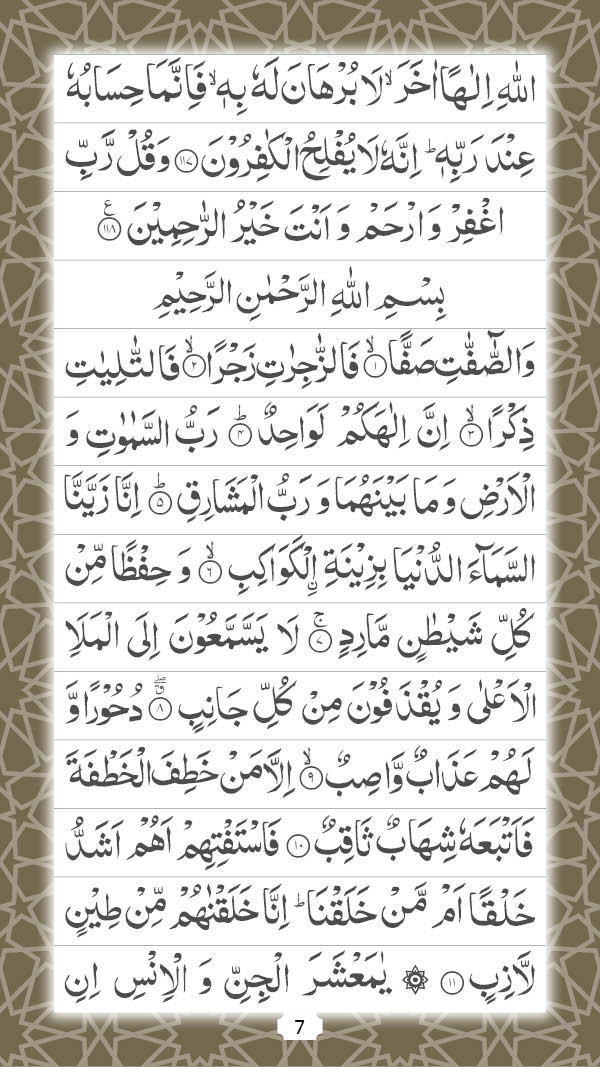 اللّٰهِ اِلٰهًا اٰخَرَ ۙ لَا بُرْهَانَ لَهٗ بِهٖ ۙ فَاِنَّمَا حِسَابُهٗ
عِنْدَ رَبِّهٖ ؕ اِنَّهٗ لَا يُفْلِحُ الْكٰفِرُوْنَ ﴿۱۱۷﴾ وَقُلْ رَّبِّ
اغْفِرْ وَارْحَمْ وَاَنْتَ خَيْرُ الرّٰحِمِيْنَ ﴿۱۱۸﴾ ع
بِسْمِ اللّٰهِ الرَّحْمٰنِ الرَّحِيْمِ
وَالصّٰٓفّٰتِ صَفًّا ۙ﴿۱﴾ فَالزّٰجِرٰتِ زَجْرًا ۙ﴿۲﴾ فَالتّٰلِيٰتِ
ذِكْرًا ۙ﴿۳﴾ اِنَّ اِلٰهَكُمْ لَوَاحِدٌ ؕ﴿۴﴾ رَبُّ السَّمٰوٰتِ وَ
الْاَرْضِ وَمَا بَيْنَهُمَا وَرَبُّ الْمَشَارِقِ ؕ﴿۵﴾ اِنَّا زَيَّنَّا
السَّمَآءَ الدُّنْيَا بِزِيْنَةِ ۨالْكَوَاكِبِ ۙ﴿۶﴾ وَ حِفْظًا مِّنْ
كُلِّ شَيْطٰنٍ مَّارِدٍ ۚ﴿۷﴾ لَا يَسَّمَّعُوْنَ اِلَى الْمَلَاِ
الْاَعْلٰى وَيُقْذَفُوْنَ مِنْ كُلِّ جَانِبٍ ۖق ﴿۸﴾ دُحُوْرًا وَّ
لَهُمْ عَذَابٌ وَّاصِبٌ ۙ﴿۹﴾ اِلَّا مَنْ خَطِفَ الْخَطْفَةَ
فَاَتْبَعَهٗ شِهَابٌ ثَاقِبٌ ﴿۱۰﴾ فَاسْتَفْتِهِمْ اَهُمْ اَشَدُّ
خَلْقًا اَمْ مَّنْ خَلَقْنَا ؕ اِنَّا خَلَقْنٰهُمْ مِّنْ طِيْنٍ
لَّازِبٍ ﴿۱۱﴾ ۞ يٰمَعْشَرَ الْجِنِّ وَ الْاِنْسِ اِنِ
7